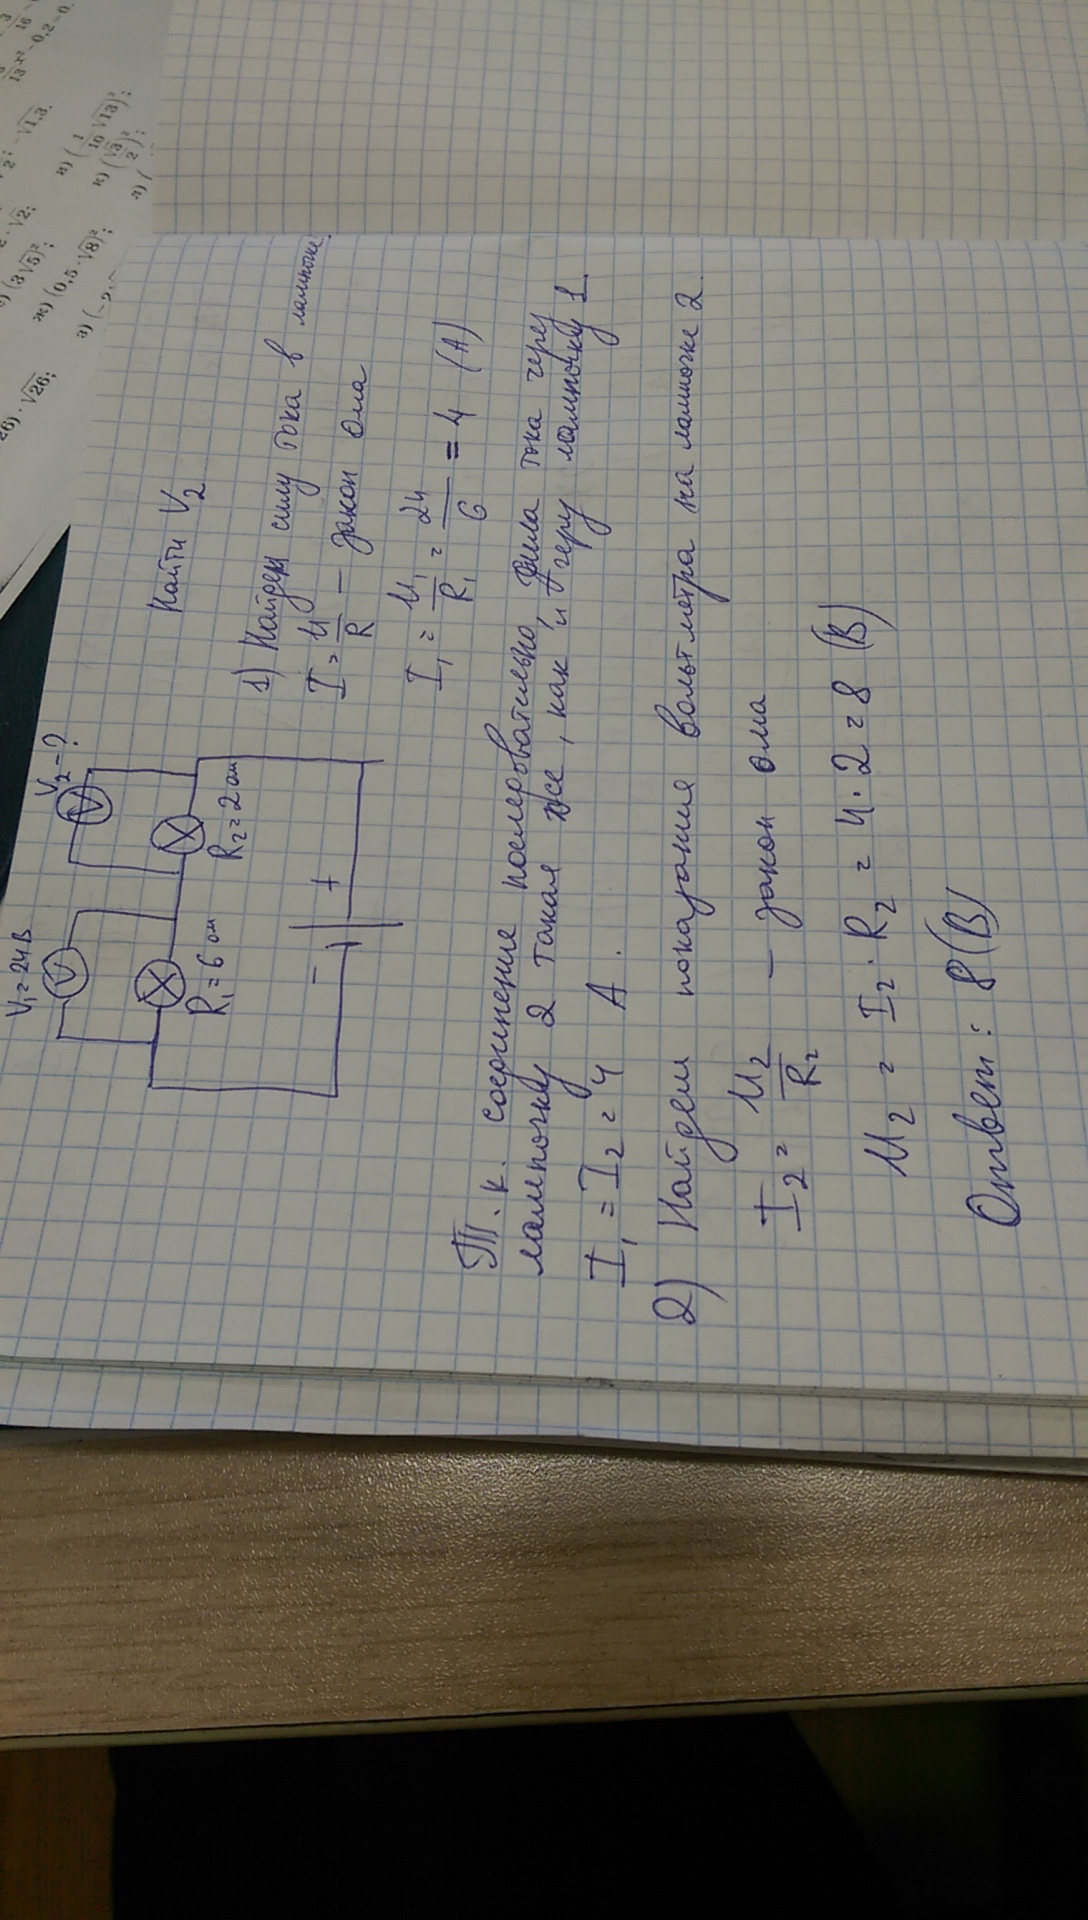 V₁=24В
V₂-?
R₁=6 ом
R₂=2 ом
- +
Найти V₂
1) Найдем силу тока в лампочке.
I = U/R — закон Ома
I₁ = U₁/R₁ = 24/6 = 4 (А)
Т.к. соединение последовательно, сила тока через
лампочку 2 такая же, как и через лампочку 1
I₁ = I₂ = 4 А.
2) Найдем показание вольтметра на лампочке 2.
I₂ = U₂/R₂ — закон ома
U₂ = I₂ · R₂ = 4 · 2 = 8 (В)
Ответ: 8 (В)
26) · √26;
(3√5)²;
ж) (0,5 · √8)²;
з) (-2
· √2;
- √1,3.
и) (1/10 √13)²;
к) (√3/2)²;
л) (
- 0,2 = 0.